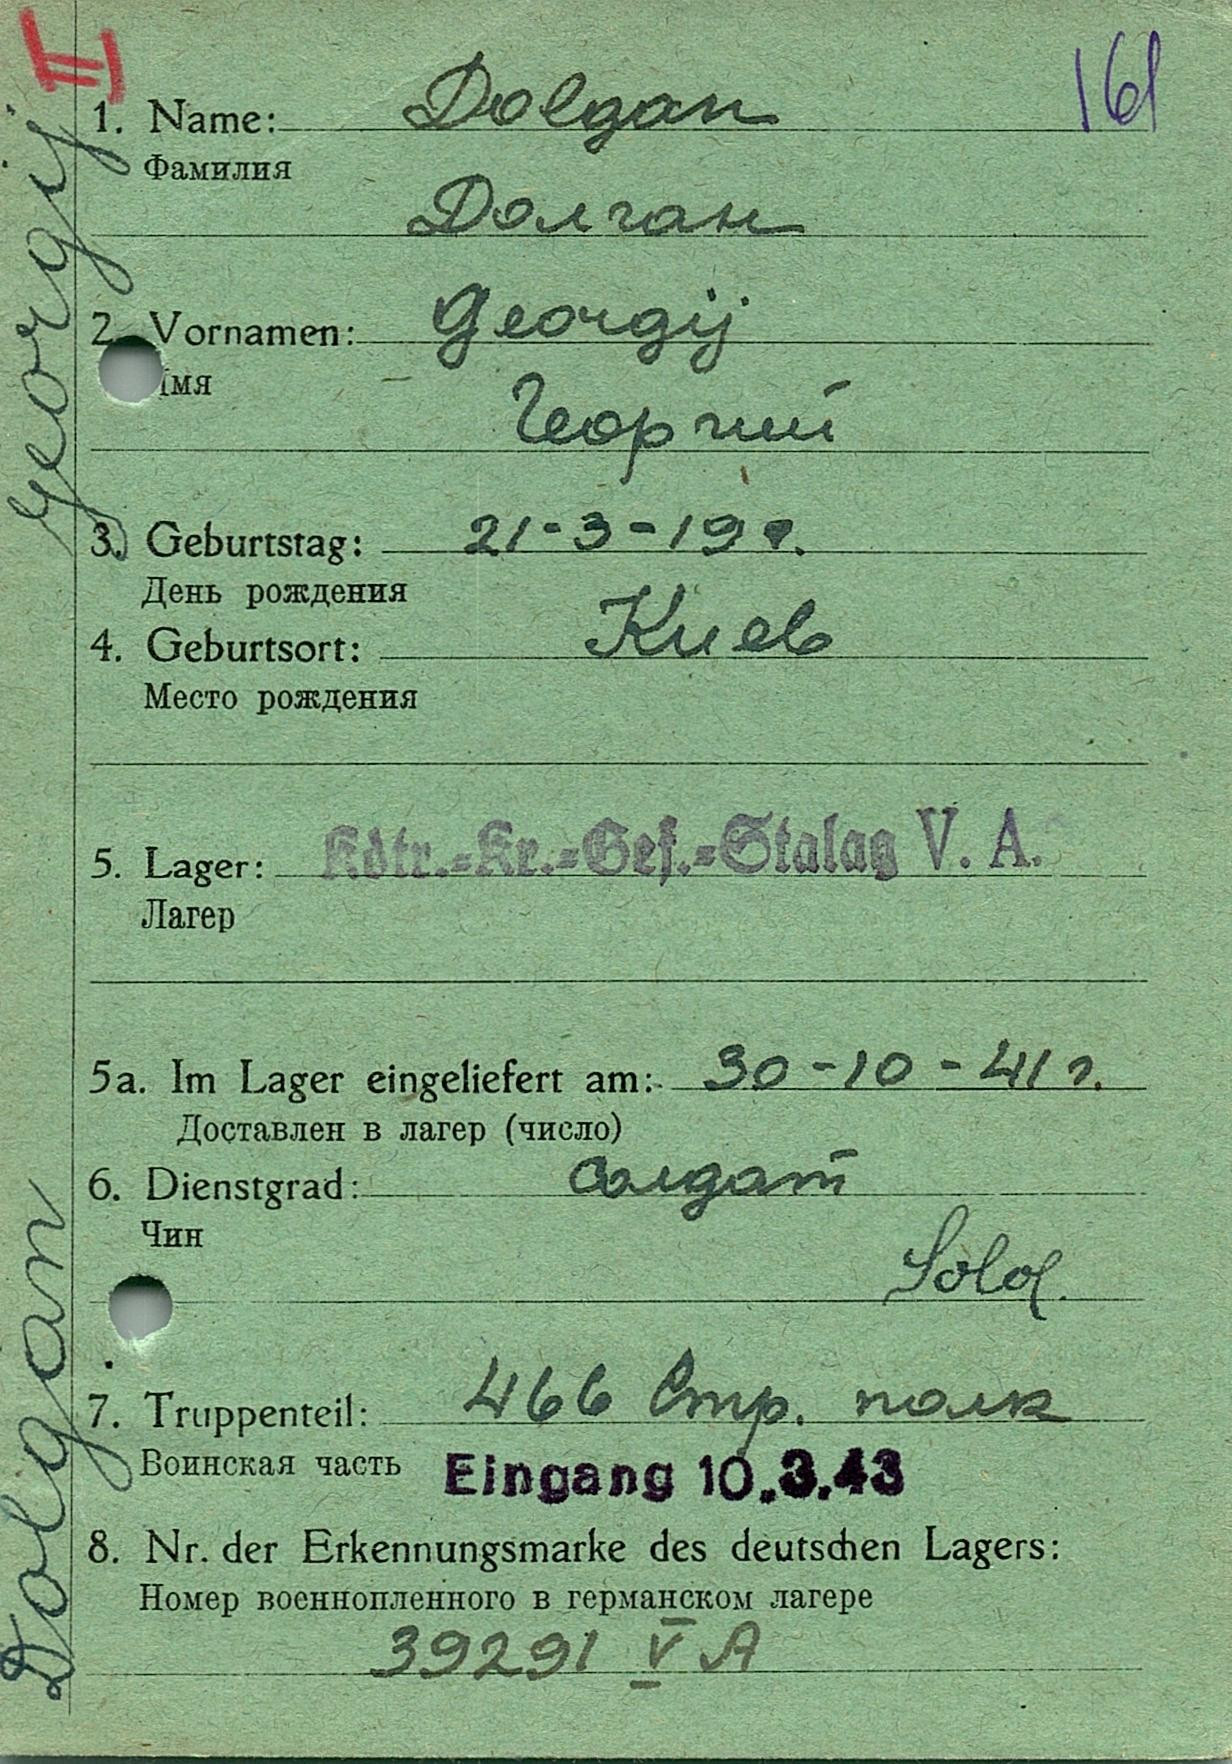 161
1. Name: Dolgan
Фамилия
Долган
2. Vornamen: Georgij
Имя
Георгий
3. Geburtstag: 21-3-19
День рождения
4. Geburtsort: Киев
Место рождения
5. Lager: Kdtr.-Kr.-Gef.-Stalag V. A.
Лагер
5a. Im Lager eingeliefert am: 30-10-41 г.
Доставлен в лагер (число)
6. Dienstgrad: Солдат
Чин
Sold.
7. Truppenteil: 466 Стр. полк
Воинская часть Eingang 10.3.43
8. Nr. der Erkennungsmarke des deutschen Lagers:
Номер военнопленного в германском лагере
39291 V A
Dolgan Georgij